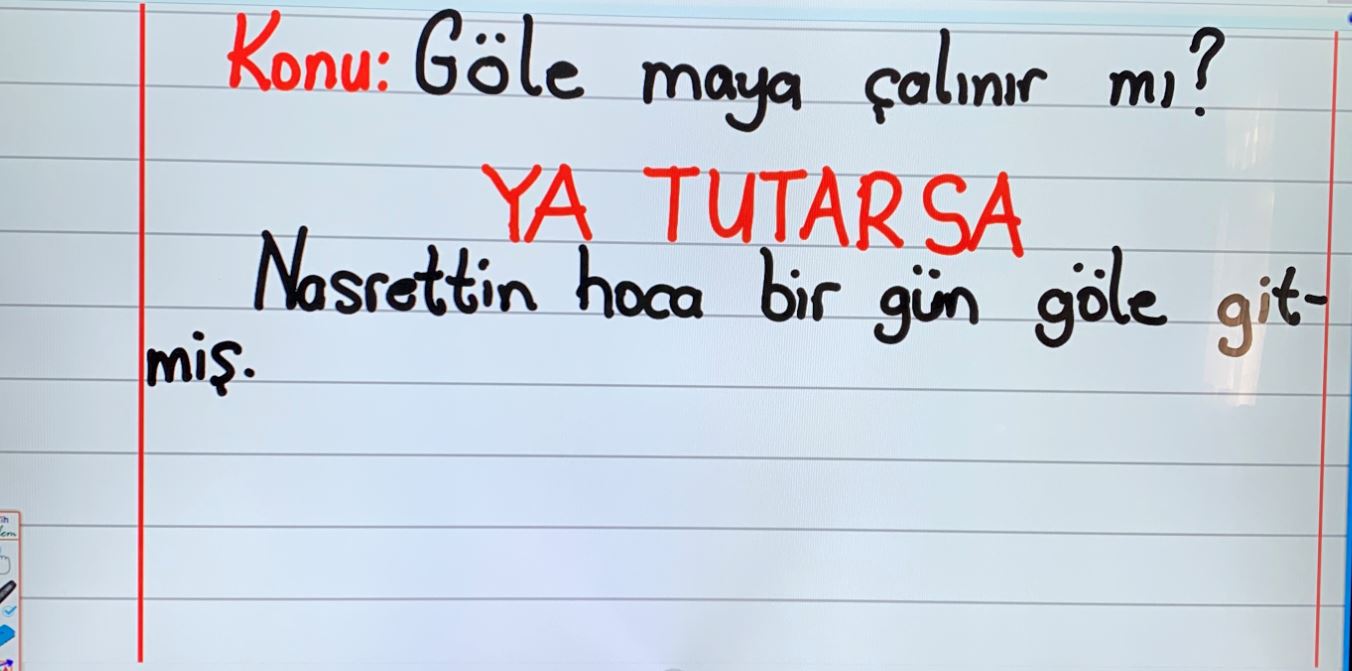 Konu: Göle maya çalınır mı?
YA TUTARSA
Nasrettin hoca bir gün göle git-
miş.